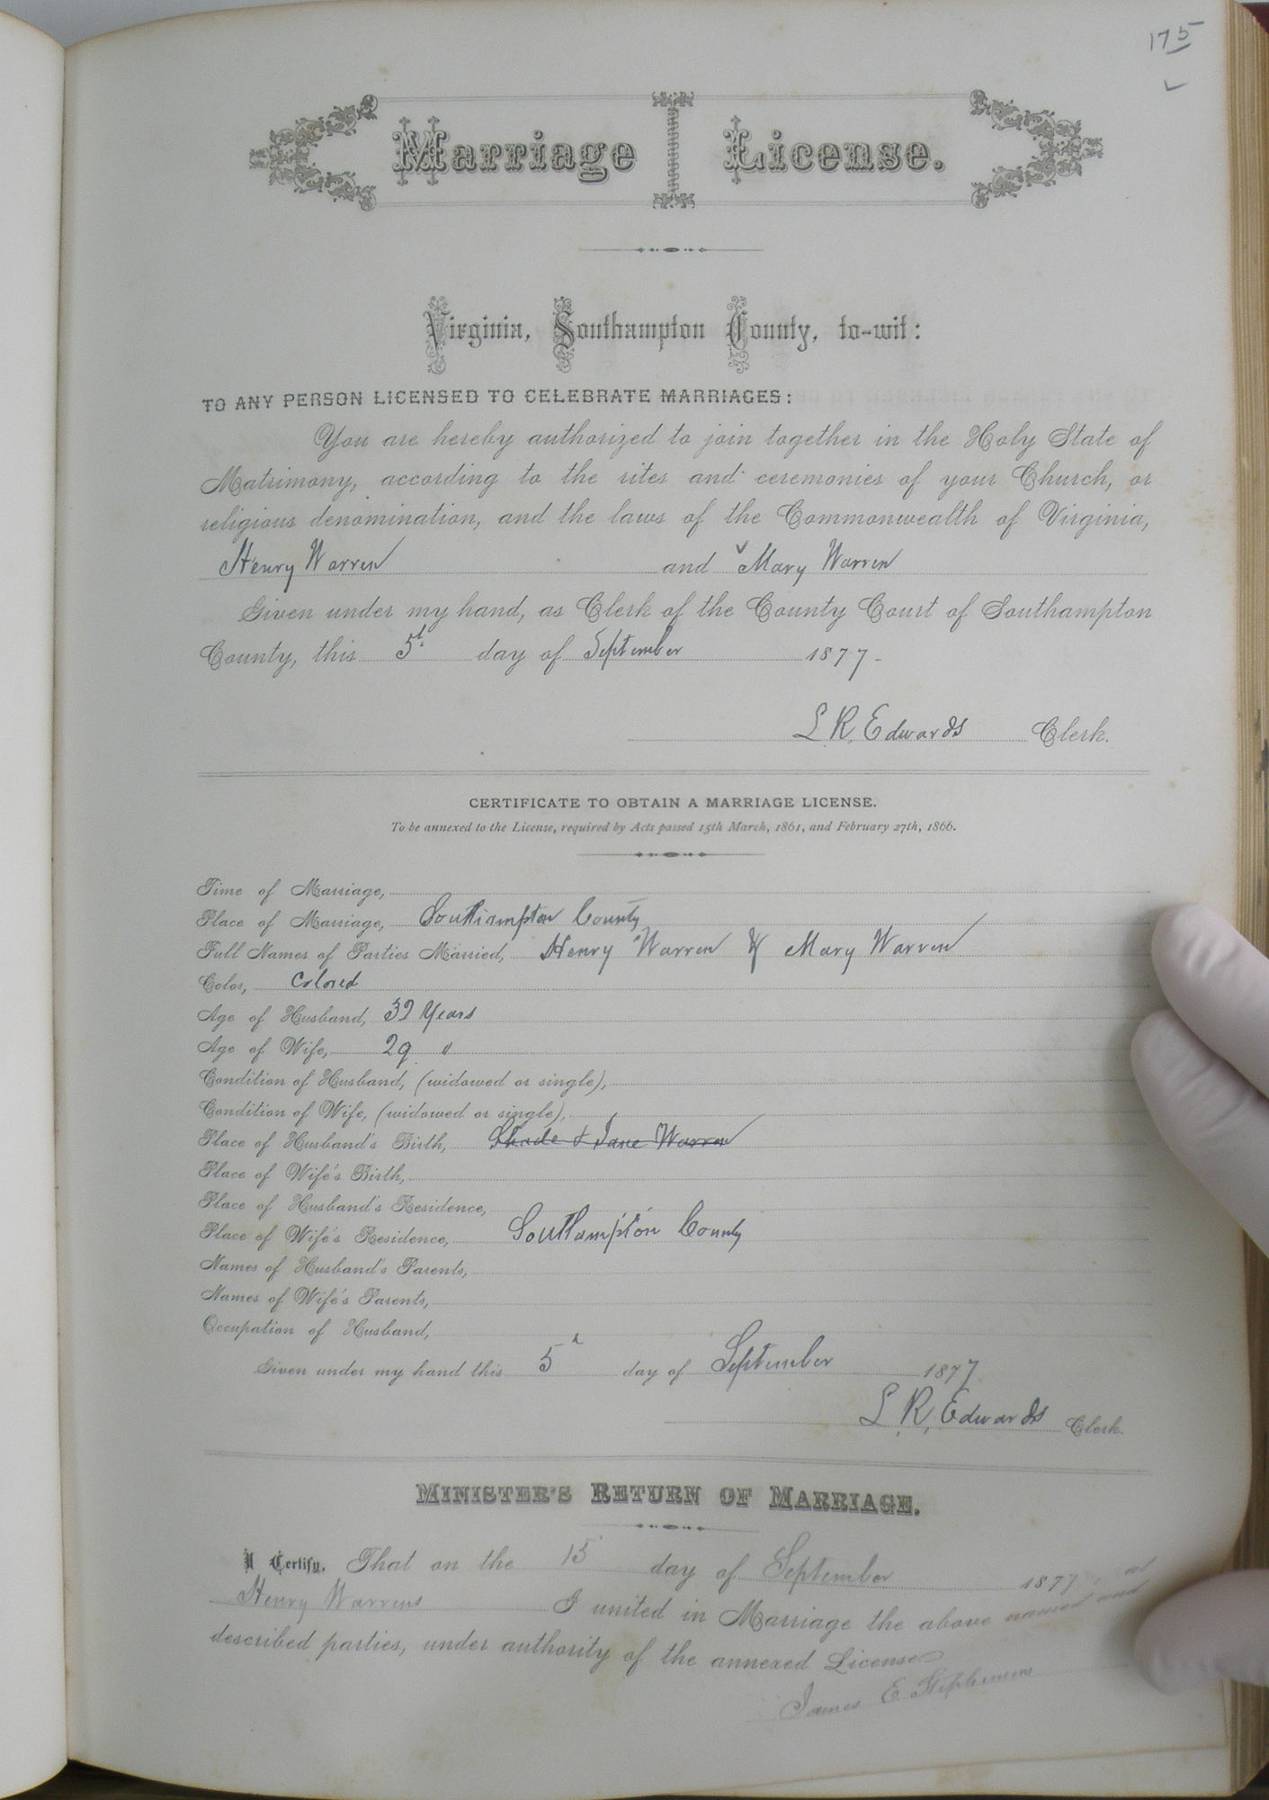 175
Marriage License.
Virginia, Southampton County, to-wit:
TO ANY PERSON LICENSED TO CELEBRATE MARRIAGES:
You are hereby authorized to join together in the Holy State of
Matrimony, according to the rites and ceremonies of your Church, or
religious denomination, and the laws of the Commonwealth of Virginia,
Henry Warren and Mary Warren
Given under my hand, as Clerk of the County Court of Southampton
County, this 5th day of September 1877-
L. R. Edwards Clerk.
CERTIFICATE TO OBTAIN A MARRIAGE LICENSE.
To be annexed to the License, required by Acts passed 15th March, 1861, and February 27th, 1866.
Time of Marriage,
Place of Marriage, Southampton County
Full Names of Parties Married, Henry Warren & Mary Warren
Color, Colored
Age of Husband, 32 Years
Age of Wife, 29 "
Condition of Husband, (widowed or single),
Condition of Wife, (widowed or single),
Place of Husband's Birth, Shade & Jane Warren
Place of Wife's Birth,
Place of Husband's Residence,
Place of Wife's Residence, Southampton County
Names of Husband's Parents,
Names of Wife's Parents,
Occupation of Husband,
Given under my hand this 5th day of September 1877
L. R. Edwards Clerk.
MINISTER'S RETURN OF MARRIAGE.
I Certify, That on the 15 day of September 1877, at
Henry Warrens I united in Marriage the above named and
described parties, under authority of the annexed License
James E. Stephenson